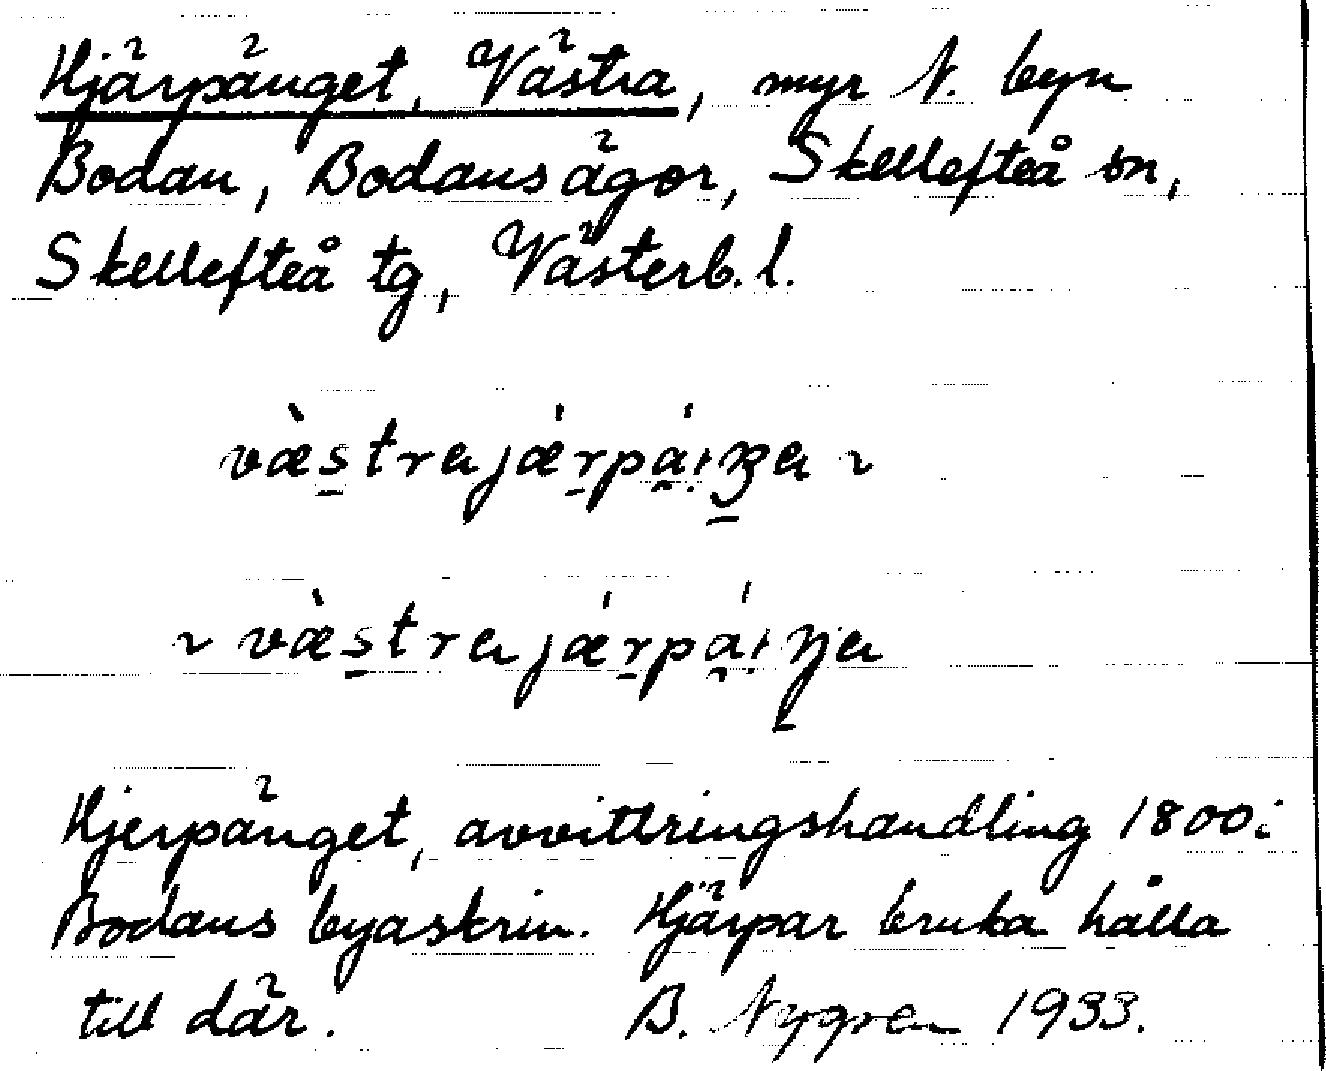 Hjärpänget, Västra, myr N. byn
Bodan, Bodans ägor, Skellefteå sn,
Skellefteå tg, Västerb. l.
Hjerpänget, avvittringshandling 1800 i
Bodans byaskrin. Hjärpar bruka hålla
till där. B. Nygren 1933.